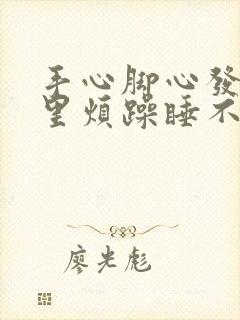 手心脚心發
里煩躁睡不
廖光彪